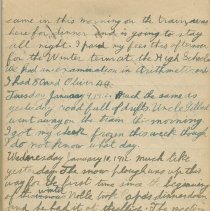 came in this morning on the train, was
here for dinner and is going to stay
all night. I paid my fees this afternoon
for the Winter term at the High School
we had an examination in Arithmetic
I had Stard Oliver
Tuesday January 9, 1912. Much the same as
yesterday road full of drifts. Uncle
went away on the train this morning
I got my cheek frozen this week though
I do not know what day.
Wednesday January 10, 1912. much like
yesterday. The snow plough was up this
way for the first time since the beginning
of the
and he had it